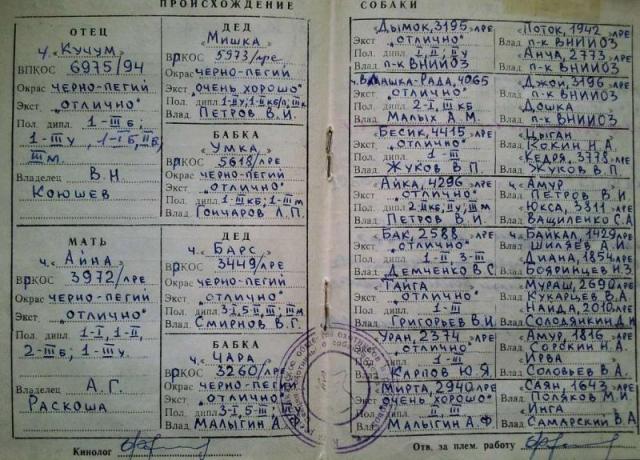 ПРОИСХОЖДЕНИЕ
ОТЕЦ
ч. "Кучум"
ВПКОС 6975/94
Окрас ЧЕРНО-ПЕГИЙ
Экст "ОТЛИЧНО"
Пол. дипл. 1-III Б;
1-III У, 1-I Б, II Б,
III м
Владелец В.Н.
Коюшев
МАТЬ
ч. "Айна"
ВРКОС 3972/ЛРЕ
Окрас ЧЕРНО-ПЕГИЙ
Экст. "ОТЛИЧНО"
Пол. дипл. 1-I, 1-II,
2-III Б; 1-III У.
Владелец А.Г.
Раскоша
ДЕД
"Мишка"
ВРКОС 5973/ЛРЕ.
Окрас ЧЕРНО-ПЕГИЙ
Экст "ОЧЕНЬ ХОРОШО"
Пол. дипл.
Влад. ПЕТРОВ В.И.
БАБКА
"Умка"
ВРКОС 5618/ЛРЕ
Окрас ЧЕРНО-ПЕГИЙ
Экст "ОТЛИЧНО"
Пол. дипл. 1-III КБ; 1-III М
Влад. ГОНЧАРОВ Л.П.
ДЕД
ч. "Барс"
ВРКОС 3449/ЛРЕ
Окрас ЧЕРНО-ПЕГИЙ
Экст. "ОТЛИЧНО"
Пол. дипл.
Влад. СМИРНОВ В.Г.
БАБКА
ч. "Чара"
ВРКОС 3260/ЛРЕ
Окрас ЧЕРНО-ПЕГИЙ
Экст. "ОТЛИЧНО"
Пол. дипл. 3-I, 5-III
Влад МАЛЫГИН А.
Кинолог
СОБАКИ
"Дымок, 3195 ЛРЕ
Экст "ОТЛИЧНО"
Пол. дипл I; II; II У
Влад п-к ВНИИОЗ
Пол. дипл 2-I, III КБ
Экст "ОТЛИЧНО"
Влад МАЛЫХ А.М.
"Бесик, 4415 ЛРЕ
Экст "ОТЛИЧНО"
Пол. дипл 1-III
Влад ЖУКОВ В.П.
"Айка, 4296 ЛРЕ
Экст "ОТЛИЧНО"
Пол. дипл 2-II КБ, II У; III М
Влад ПЕТРОВ В.И.
"Бак, 2588 ЛРЕ
Экст "ОТЛИЧНО"
Пол. дипл 1-II 3-III
Влад. ДЕМЧЕНКО В.С.
"Тайга
Экст "ОТЛИЧНО"
Пол. дипл
Влад ГРИГОРЬЕВ В.И.
"Уран, 2374 ЛРЕ
Экст "ОТЛИЧНО"
Пол. дипл
Влад КАРПОВ Ю.Я.
"Мирта, 2940 ЛРЕ
Экст "ОЧЕНЬ ХОРОШО"
Пол. дипл II, III
Влад МАЛЫГИН А.Ф
"Поток, 1942 ЛРЕ
Влад п-к ВНИИОЗ
"Анча, 2773 ЛРЕ
Влад п-к ВНИИОЗ
"Джой, 3196 ЛРЕ
Влад п-к ВНИИОЗ
"Дошка
Влад п-к ВНИИОЗ
"Цыган
Влад КОКИН Н.А.
"Кедря, 3778 ЛРЕ
Влад ЖУКОВ В.П.
ч. "Амур
Влад ПЕТРОВ В.И
"Юкса, 3311 ЛРЕ
Влад ВАЩИЛЕНКО С.А
ч. "Байкал, 1429 ЛРЕ
Влад ШИЛЯЕВ А.И
"Диана, 1854 ЛРЕ
Влад БОЯРИНЦЕВ Н.З
"Мураш, 2690 ЛРЕ
Влад КУКАРЦЕВ В.А.
"Найда, 2010 ЛРЕ
Влад СОЛОДЯНКИН Д.Н
"Амур, 1816 ЛРЕ
Влад СОРСКИН Н.А.
"Ирва
Влад СОЛОВЬЕВ В.А.
"Саян, 1643 ЛРЕ
Влад ПОЛЯКОВ М.И
"Инга
Влад САМАРСКИЙ В.А
Отв. за плем. работу